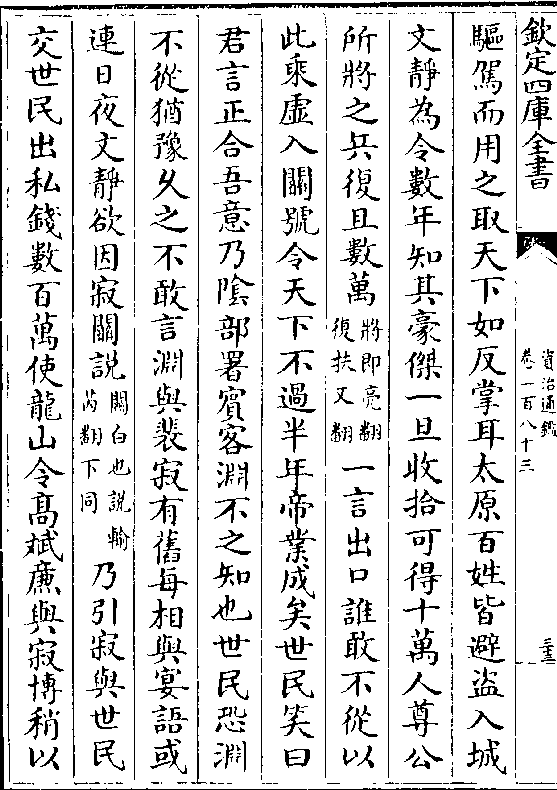 欽定四庫全書
資治通鑑
卷一百八十三
驅駕而用之取天下如反掌耳太原百姓皆避盜入城
文靜為令數年知其豪傑一旦收拾可得十萬人尊公
所將之兵復且數萬將即亮翻復扶又翻一言出口誰敢不從以
此乘虛入關號令天下不過半年帝業成矣世民笑曰
君言正合吾意乃陰部署賓客淵不之知也世民恐淵
不從猶豫久之不敢言淵與裴寂有舊每相與宴語或
連日夜文靜欲因寂關說關白也說輸芮翻下同乃引寂與世民
交世民出私錢數百萬使龍山令高斌廉與寂博稍以